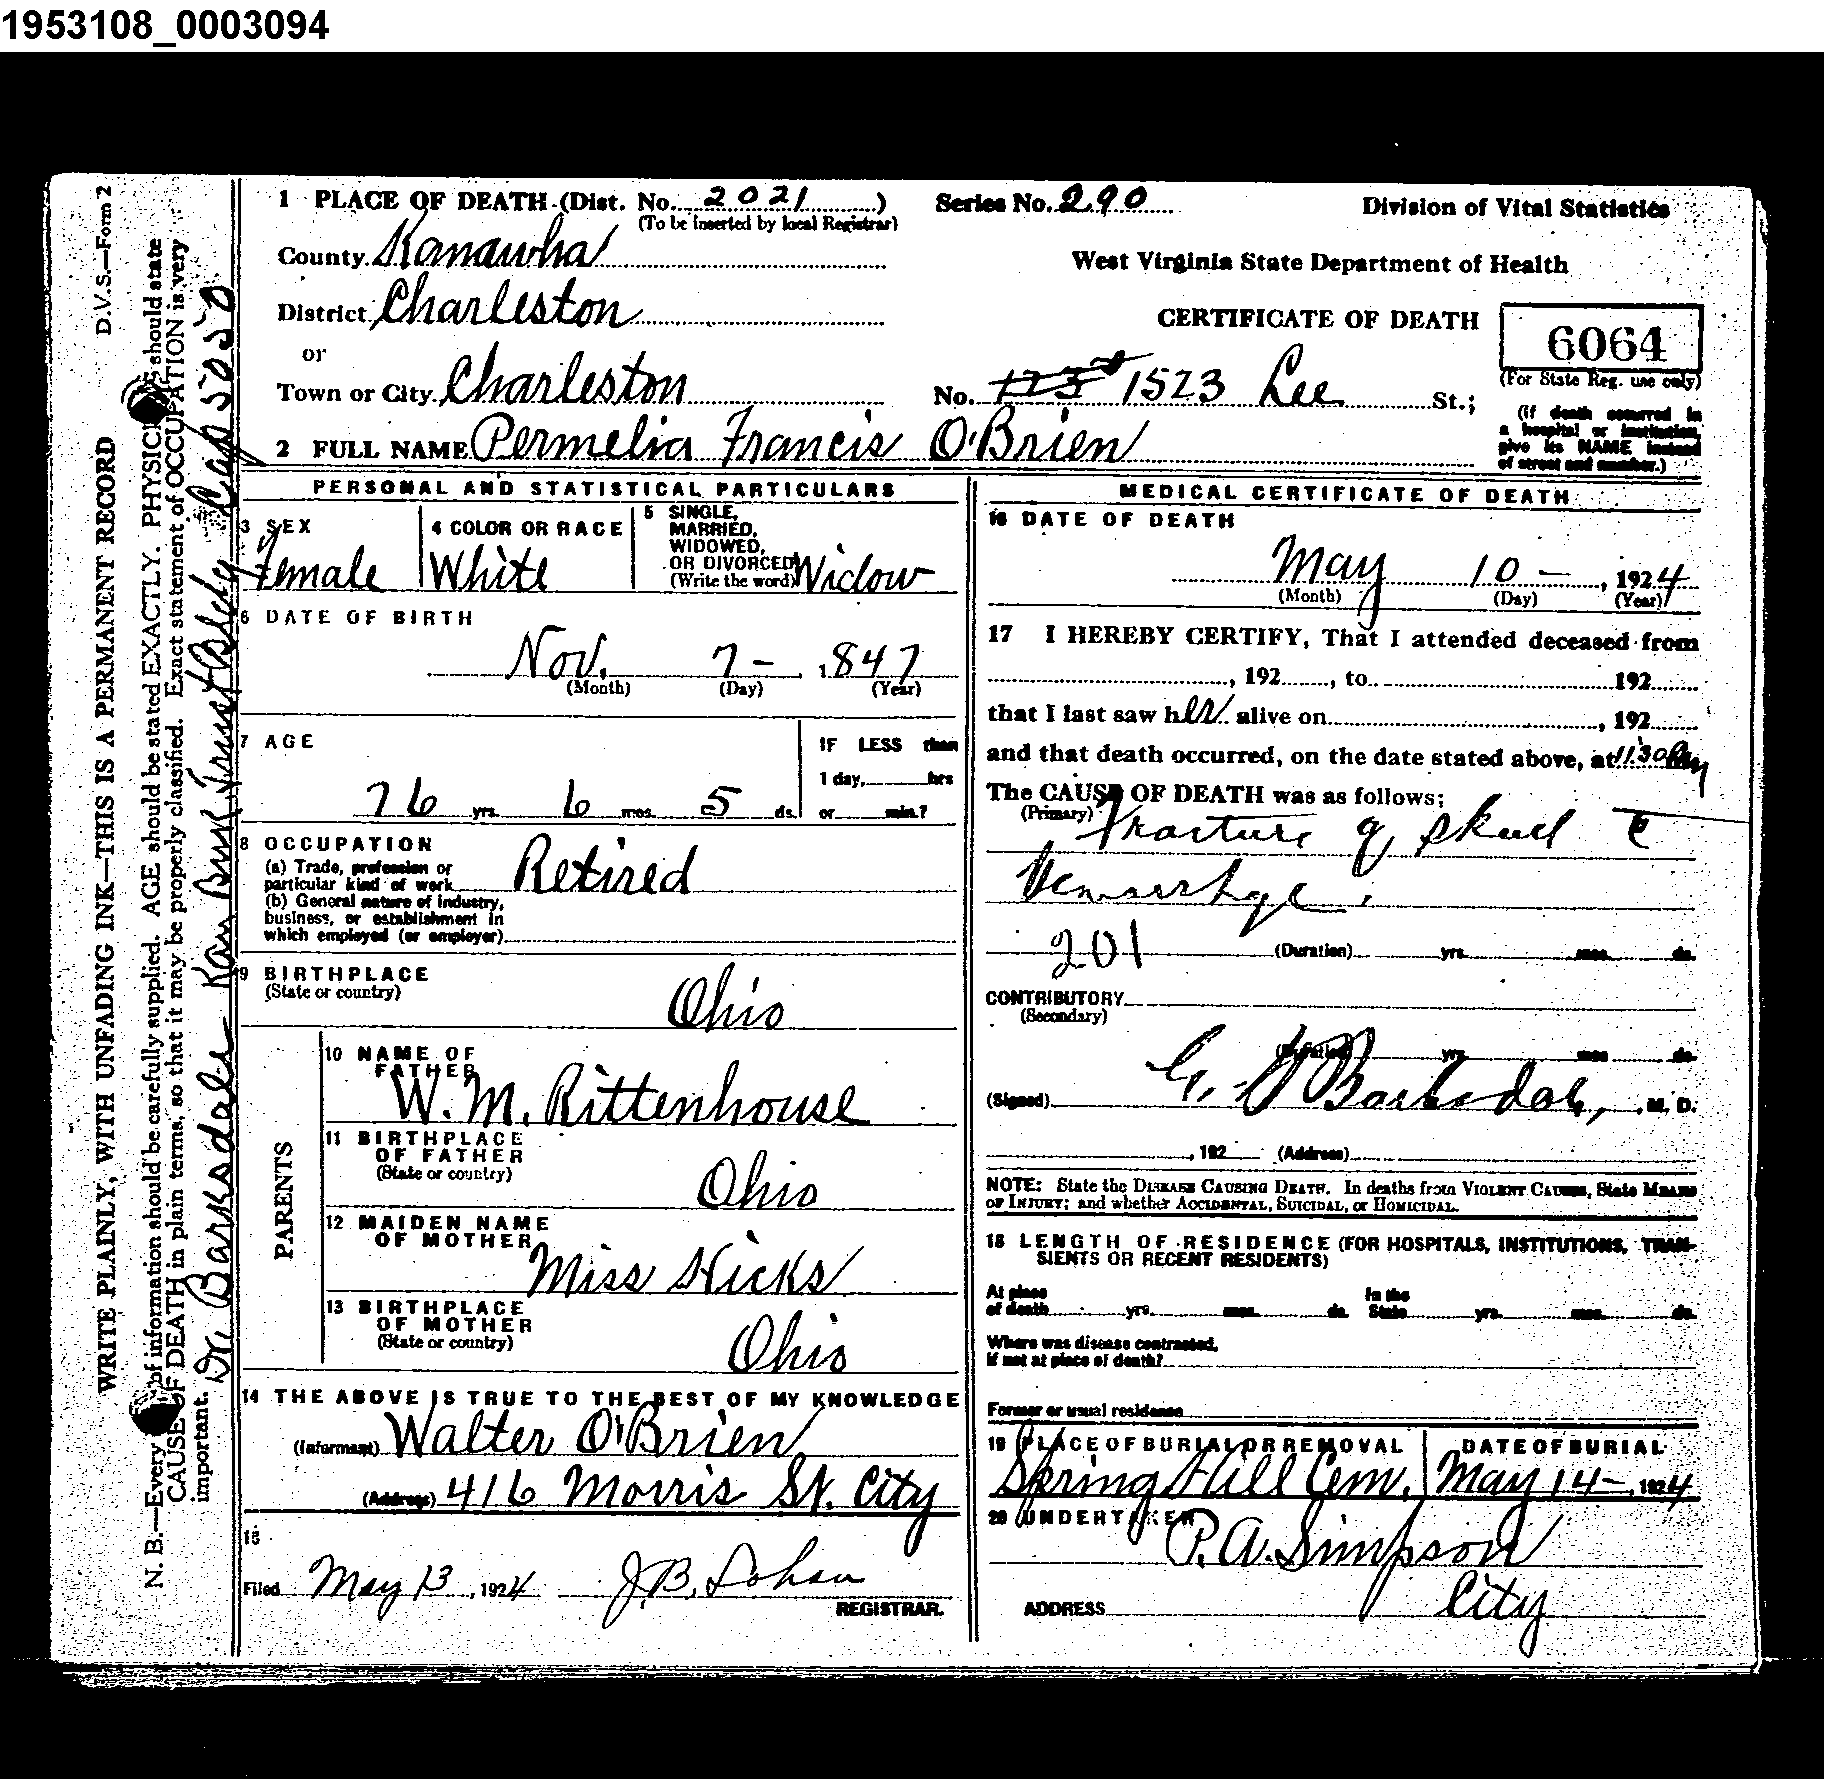 1953108_0003094
1 PLACE OF DEATH (Dist. No. 2021) Series No. 290 Division of Vital Statistics
(To be inserted by local Registrar)
County Kanawha West Virginia State Department of Health
District Charleston CERTIFICATE OF DEATH 6064
or
Town or City Charleston No. 1523 Lee St.; (For State Reg. use only)
(If death occurred in a hospital or institution, give its NAME instead of street and number.)
2 FULL NAME Permelia Francis O'Brien
PERSONAL AND STATISTICAL PARTICULARS
3 SEX Female
4 COLOR OR RACE White
5 SINGLE, MARRIED, WIDOWED, OR DIVORCED (Write the word) Widow
6 DATE OF BIRTH
Nov. 7 - 1847
(Month) (Day) (Year)
7 AGE IF LESS than
1 day, hrs
76 yrs. 6 mos. 5 ds. or min.?
8 OCCUPATION
(a) Trade, profession or
particular kind of work Retired
(b) General nature of industry,
business, or establishment in
which employed (or employer)
9 BIRTHPLACE
(State or country) Ohio
PARENTS
10 NAME OF FATHER W. M. Rittenhouse
11 BIRTHPLACE OF FATHER
(State or country) Ohio
12 MAIDEN NAME OF MOTHER Miss Hicks
13 BIRTHPLACE OF MOTHER
(State or country) Ohio
14 THE ABOVE IS TRUE TO THE BEST OF MY KNOWLEDGE
(Informant) Walter O'Brien
(Address) 416 Morris St. City
15
Filed May 13, 1924 J.B. REGISTRAR.
MEDICAL CERTIFICATE OF DEATH
16 DATE OF DEATH
May 10 -, 1924
(Month) (Day) (Year)
17 I HEREBY CERTIFY, That I attended deceased from
, 192 , to 192
that I last saw her alive on , 192
and that death occurred, on the date stated above, at 11:30 Pm
The CAUSE OF DEATH was as follows:
(Primary) Fracture of skull c̄
Hemorrhage.
201 (Duration) yrs. mos. ds.
CONTRIBUTORY
(Secondary)
(Duration) yrs. mos. ds.
(Signed) Barksdale, M. D.
, 192 (Address)
NOTE: State the DISEASE CAUSING DEATH. In deaths from VIOLENT CAUSES, State MEANS
OF INJURY; and whether ACCIDENTAL, SUICIDAL, or HOMICIDAL.
18 LENGTH OF RESIDENCE (FOR HOSPITALS, INSTITUTIONS, TRAN-
SIENTS OR RECENT RESIDENTS)
At place of death yrs. mos. ds. In the State yrs. mos. ds.
Where was disease contracted,
if not at place of death?
Former or usual residence
19 PLACE OF BURIAL OR REMOVAL DATE OF BURIAL
Spring Hill Cem. May 14 -, 1924
20 UNDERTAKER P.A. Simpson
ADDRESS City
D.V.S.—Form 2
WRITE PLAINLY, WITH UNFADING INK—THIS IS A PERMANENT RECORD
N. B.—Every of information should be carefully supplied. AGE should be stated EXACTLY. PHYSIC should state
CAUSE OF DEATH in plain terms, so that it may be properly classified. Exact statement of OCCUPATION is very
important.
Dr. Barksdale Kan Bank Trust Bldg Cap 5050